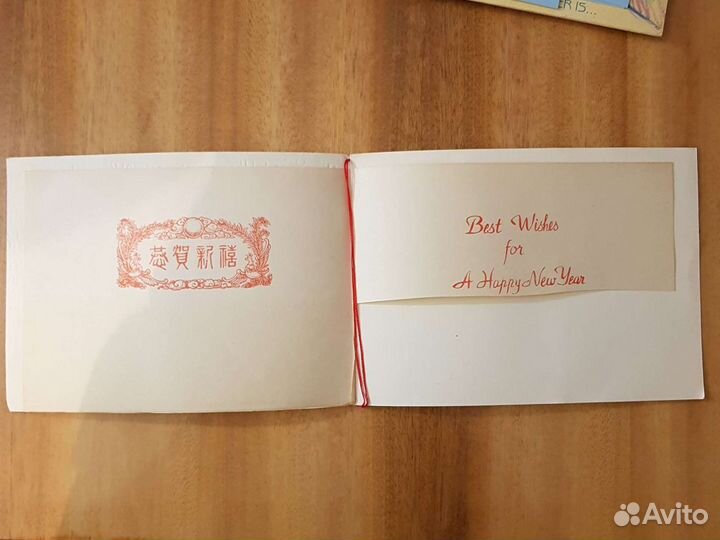 ER IS...
恭賀新禧
Best Wishes
for
A Happy New Year
Avito